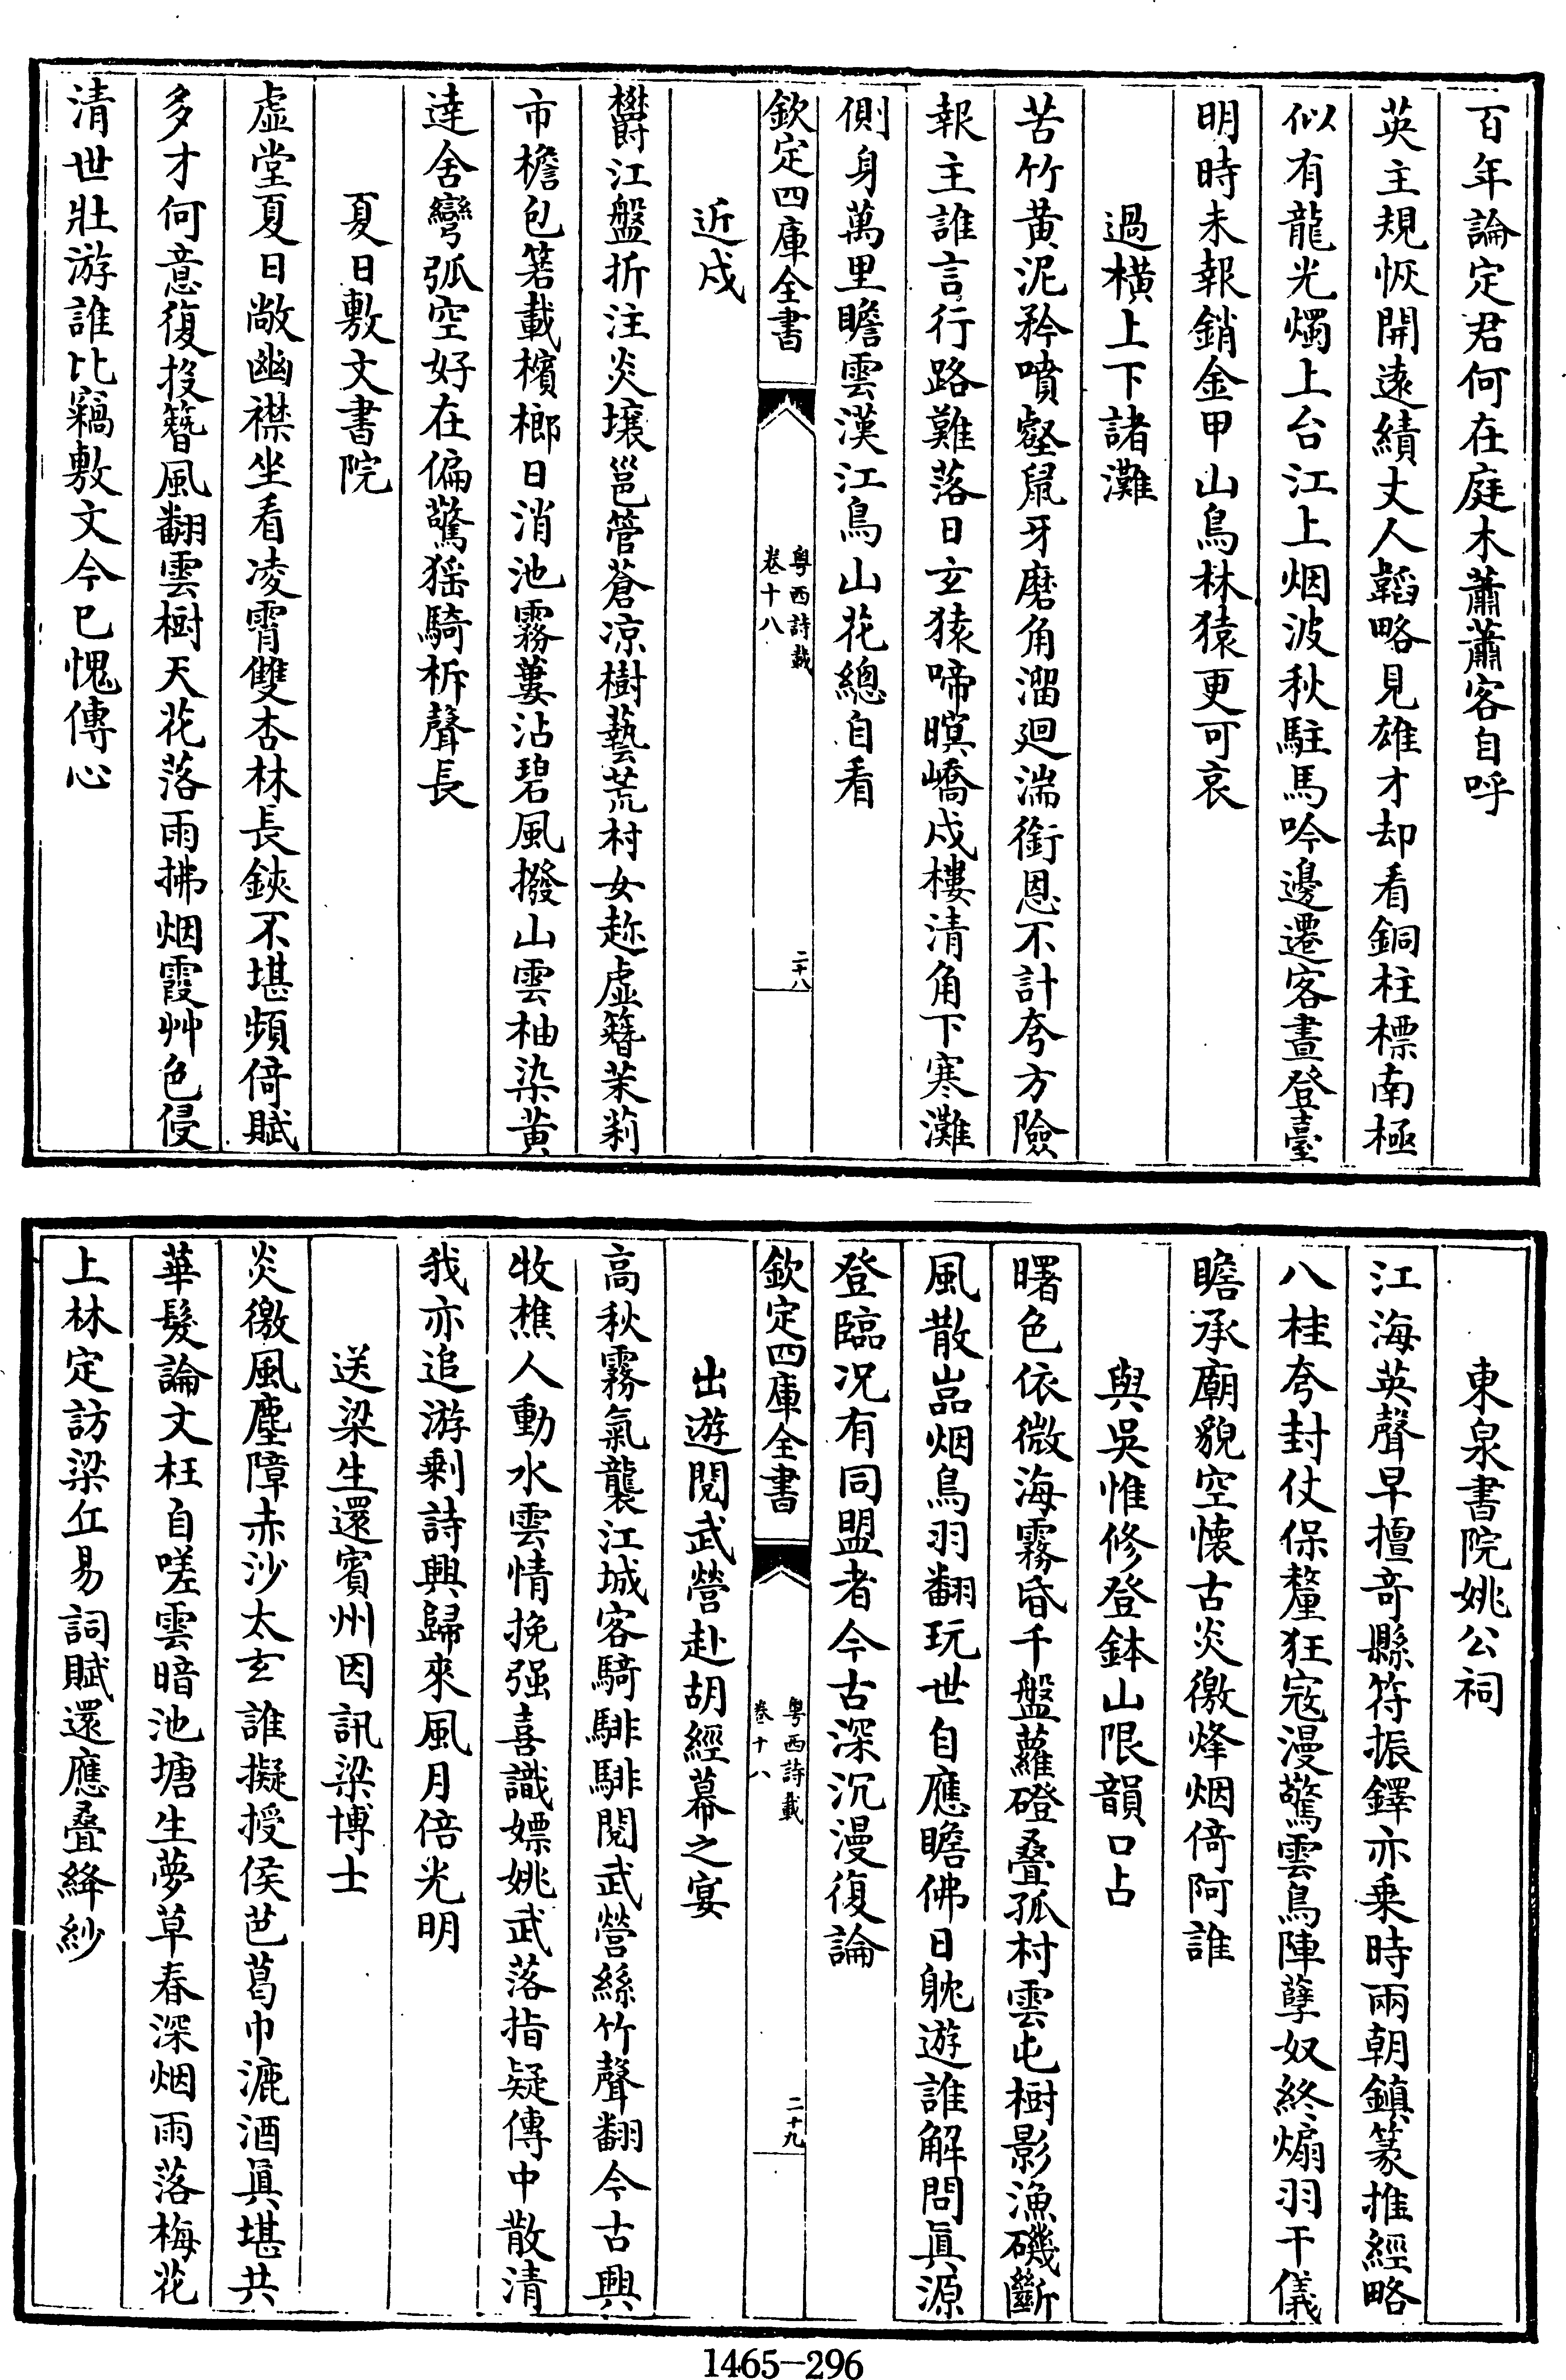 百年論定君何在庭木蕭蕭客自呼
英主規恢開遠績丈人韜略見雄才却看銅柱標南極
似有龍光燭上台江上烟波秋駐馬吟邊遷客晝登臺
明時未報銷金甲山鳥林猿更可哀
過橫上下諸灘
苦竹黄泥矜噴壑鼠牙磨角溜迴湍銜恩不計夸方險
報主誰言行路難落日玄猿啼暝嶠戍樓清角下寒灘
側身萬里瞻雲漢江鳥山花總自看
欽定四庫全書
粤西詩載
卷十八
二十八
近戍
欝江盤折注炎壤邕管蒼凉樹藝荒村女趂虛簪茉莉
市檐包箬載檳榔日消池霧蔞沾碧風撥山雲柚染黄
逹舍彎弧空好在偏驚猺騎柝聲長
夏日敷文書院
虛堂夏日敞幽襟坐看凌霄雙杏林長鋏不堪頻倚賦
多才何意復投簪風翻雲樹天花落雨拂烟霞艸色侵
清世壯游誰比竊敷文今已愧傳心
東泉書院姚公祠
江海英聲早擅奇縣符振鐸亦乗時兩朝鎮篆推經略
八桂夸封仗保釐狂寇漫驚雲鳥陣孽奴終煽羽干儀
瞻承廟貌空懷古炎徼烽烟倚阿誰
與吳惟修登鉢山限韻口占
曙色依微海霧昏千盤蘿磴叠孤村雲屯樹影漁磯斷
風散嵓烟鳥羽翻玩世自應瞻佛日躭遊誰解問眞源
登臨况有同盟者今古深沉漫復論
欽定四庫全書
粤西詩載
卷十八
二十九
出遊閱武營赴胡經幕之宴
高秋霧氣襲江城客騎騑騑閱武營絲竹聲翻今古興
牧樵人動水雲情挽强喜識嫖姚武落指疑傳中散清
我亦追游剩詩興歸來風月倍光明
送梁生還賓州因訊梁博士
炎徼風塵障赤沙太玄誰擬授侯芭葛巾漉酒眞堪共
華髮論文枉自嗟雲暗池塘生夢草春深烟雨落梅花
上林定訪梁丘易詞賦還應叠絳紗
1465-296